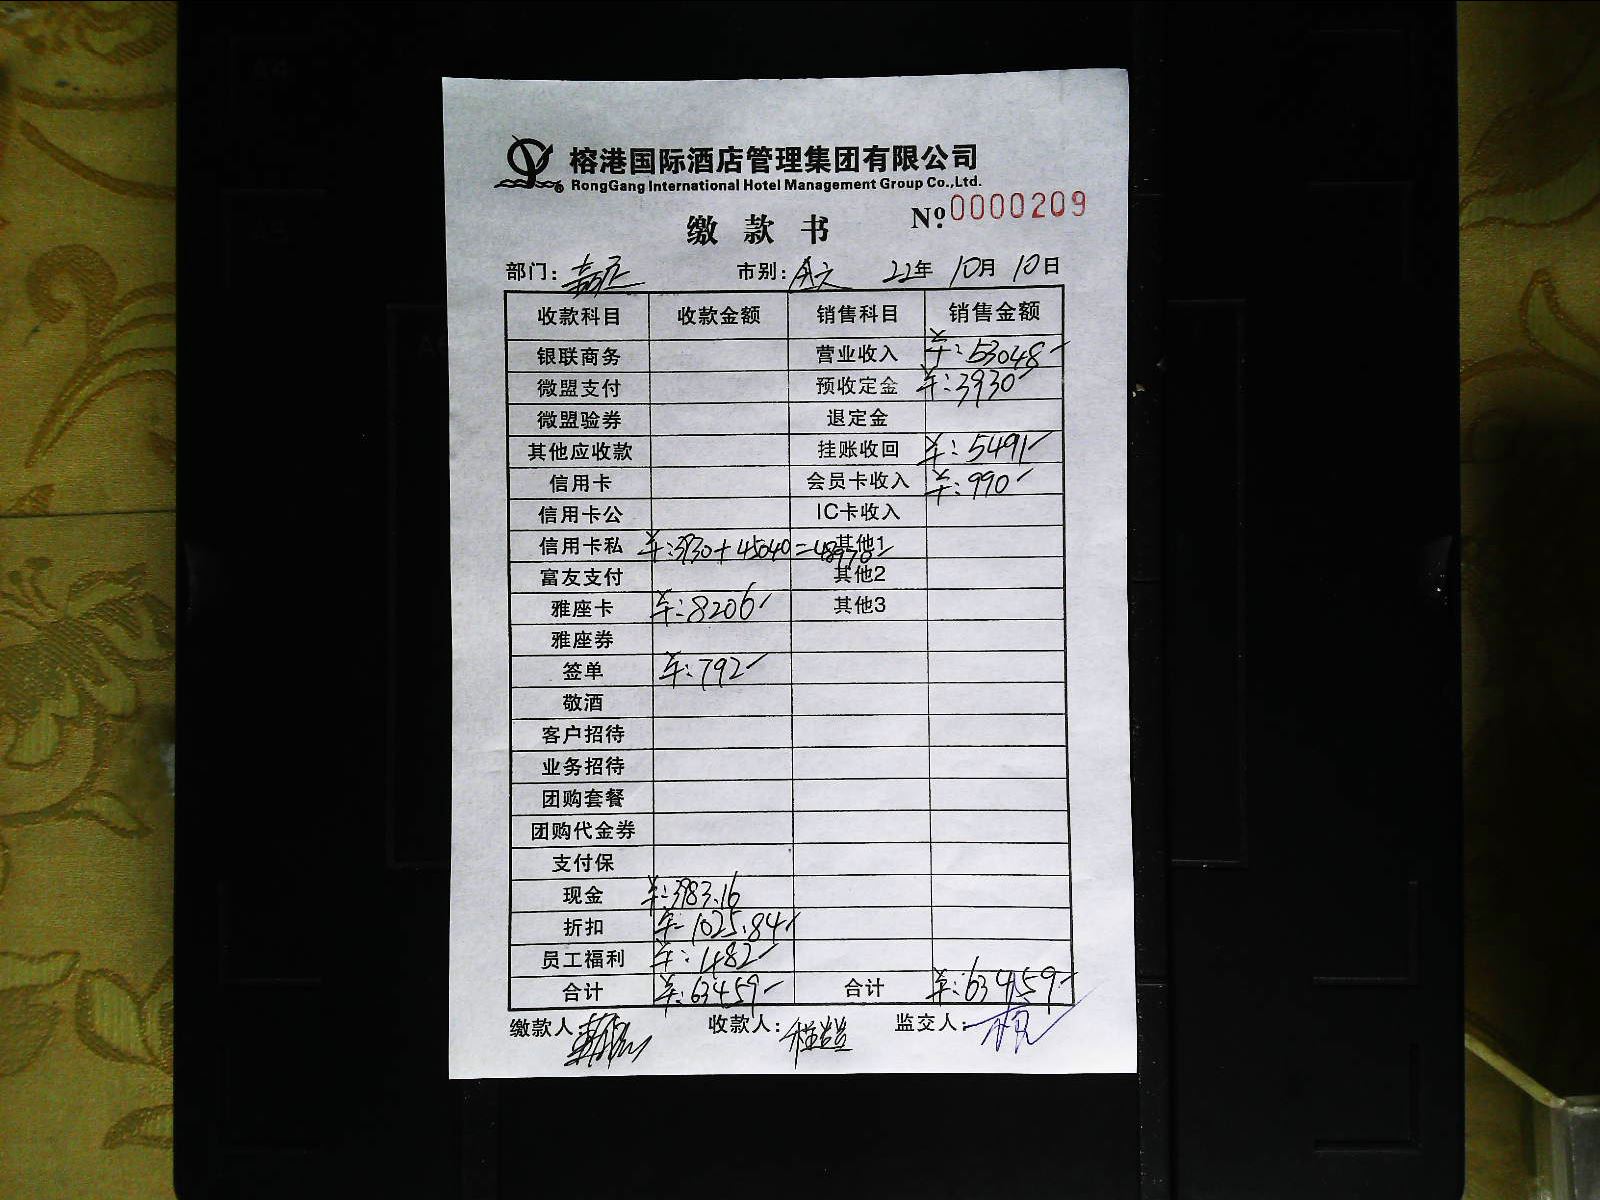 榕港国际酒店管理集团有限公司
RongGang International Hotel Management Group Co.,Ltd.
缴款书 №.0000209
部门: 市别: 22年 10月 10日
收款科目 收款金额 销售科目 销售金额
银联商务 营业收入 ¥:53048
微盟支付 预收定金 ¥:3930
微盟验券 退定金
其他应收款 挂账收回 ¥:5491
信用卡 会员卡收入 ¥:990
信用卡公 IC卡收入
信用卡私 ¥:3930+45040=48970 其他1
富友支付 其他2
雅座卡 ¥:8206 其他3
雅座券
签单 ¥:792
敬酒
客户招待
业务招待
团购套餐
团购代金券
支付保
现金 ¥:3983.16
折扣 ¥-1025.84
员工福利 ¥:1482
合计 ¥:63459 合计 ¥:63459
缴款人 收款人: 监交人: